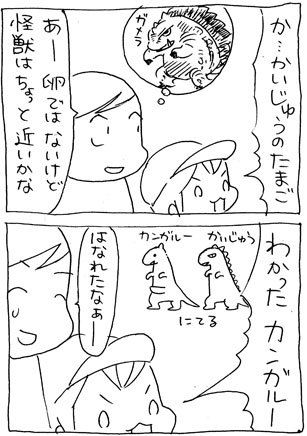 か…かいじゅうのたまご
ガメラ
あー卵ではないけど
怪獣はちょっと近いかな
わかった カンガルー
かいじゅう
カンガルー
にてる
はなれたなぁー